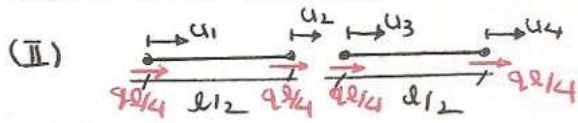 (II) u1 u2 u3 u4
qℓ/4 ℓ/2 qℓ/4 qℓ/4 ℓ/2 qℓ/4